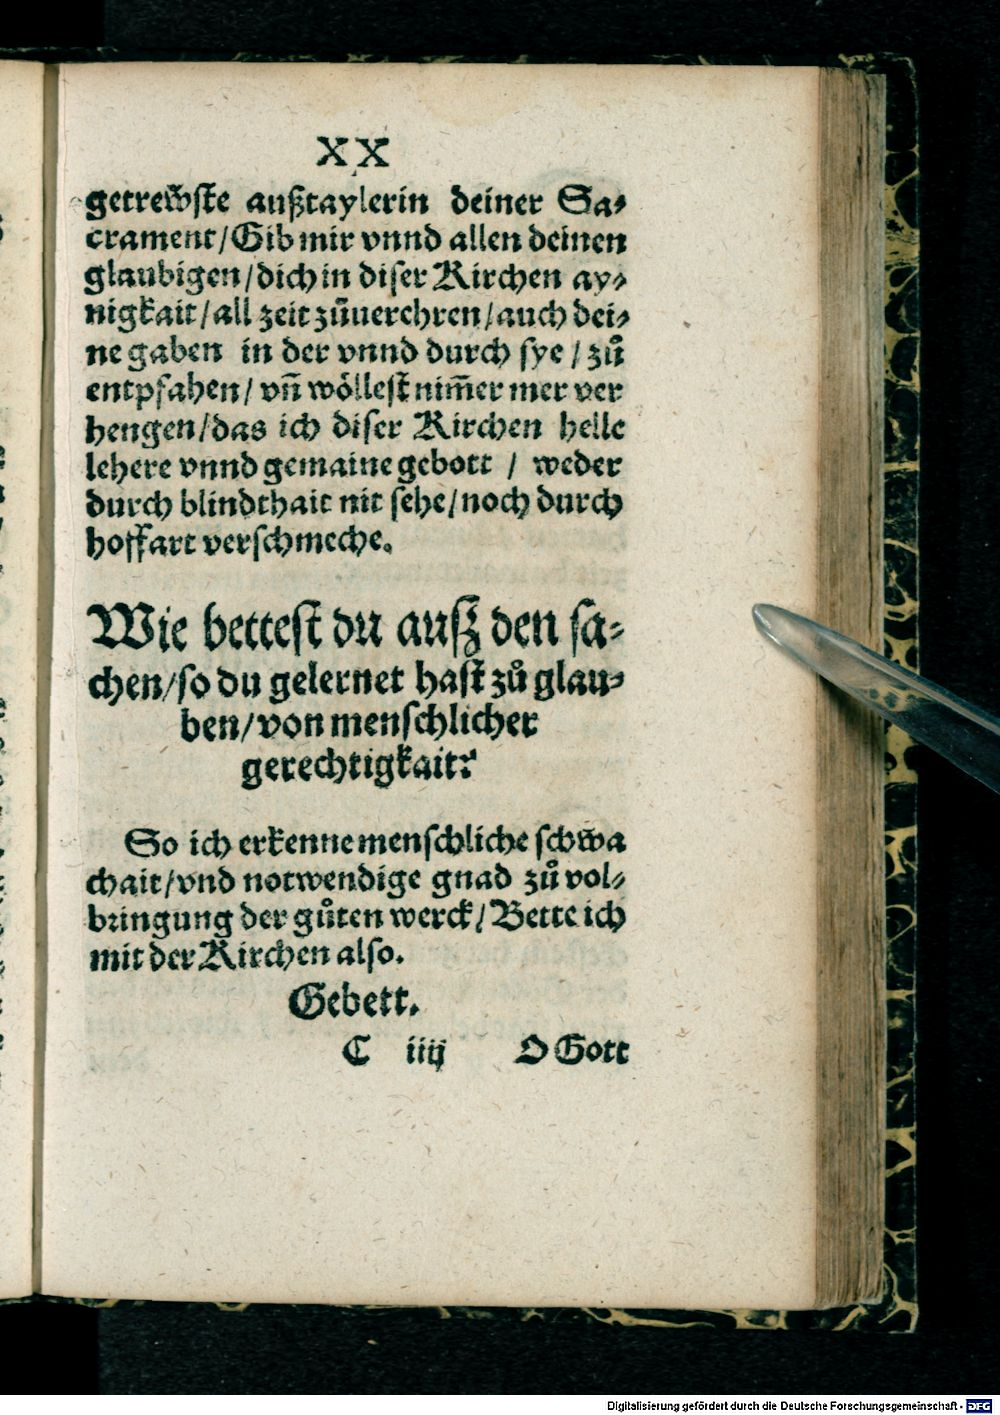 XX
getrewͤste außtaylerin deiner Sa⸗
crament/Gib mir vnnd allen deinen
glaubigen/dich in diser Kirchen ay⸗
nigkait/all zeit zůuerehren/auch dei⸗
ne gaben in der vnnd durch sye/zů
entpfahen/vn̄ wöllest nim̄er mer ver
hengen/das ich diser Kirchen helle
lehere vnnd gemaine gebott/weder
durch blindthait nit sehe/noch durch
hoffart verschmeche.
Wie bettest du auß den sa⸗
chen/so du gelernet hast zů glau⸗
ben/von menschlicher
gerechtigkait?
So ich erkenne menschliche schwa
chait/vnd notwendige gnad zů vol⸗
bringung der gůten werck/Bette ich
mit der Kirchen also.
Gebett.
C iiij O Gott
Digitalisierung gefördert durch die Deutsche Forschungsgemeinschaft - DFG